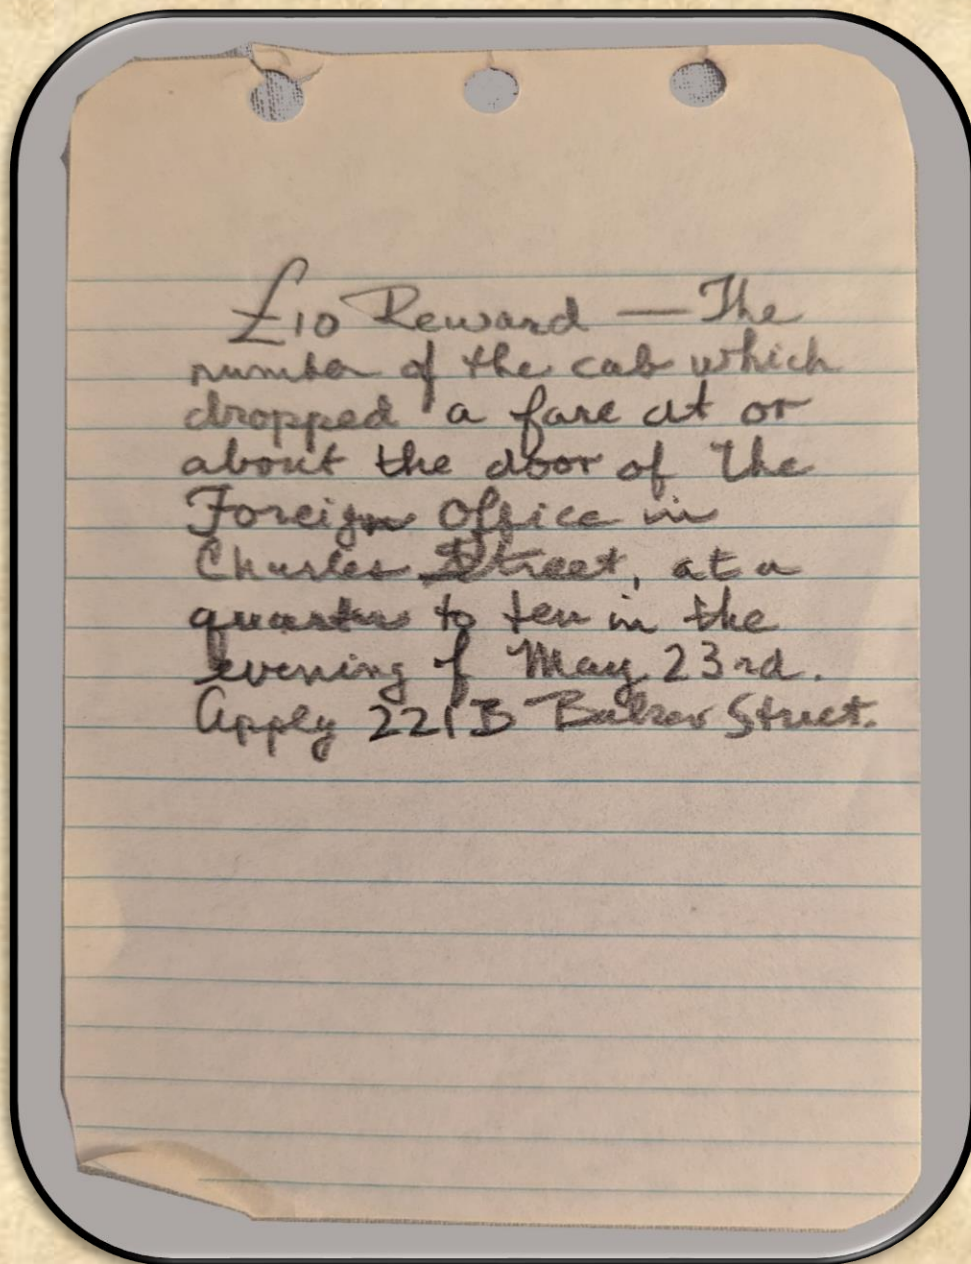 £10 Reward — The
number of the cab which
dropped a fare at or
about the door of the
Foreign Office in
Charles Street, at a
quarter to ten in the
evening of May 23rd.
Apply 221B Baker Street.